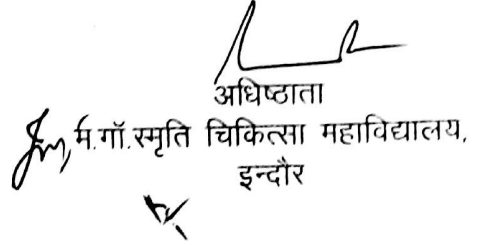 अधिष्ठाता
म.गॉ.स्मृति चिकित्सा महाविद्यालय,
इन्दौर